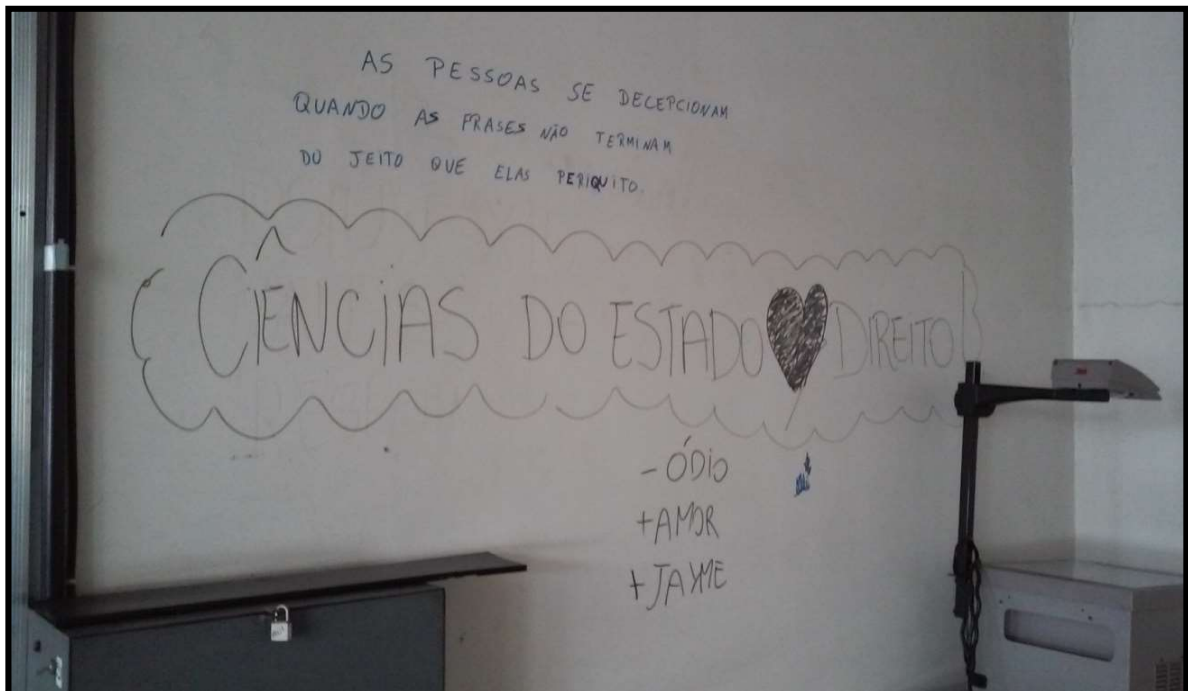 AS PESSOAS SE DECEPCIONAM
QUANDO AS FRASES NÃO TERMINAM
DO JEITO QUE ELAS PERIQUITO.
CIÊNCIAS DO ESTADO ♥ DIREITO
- ÓDIO
+ AMOR
+ JAYME